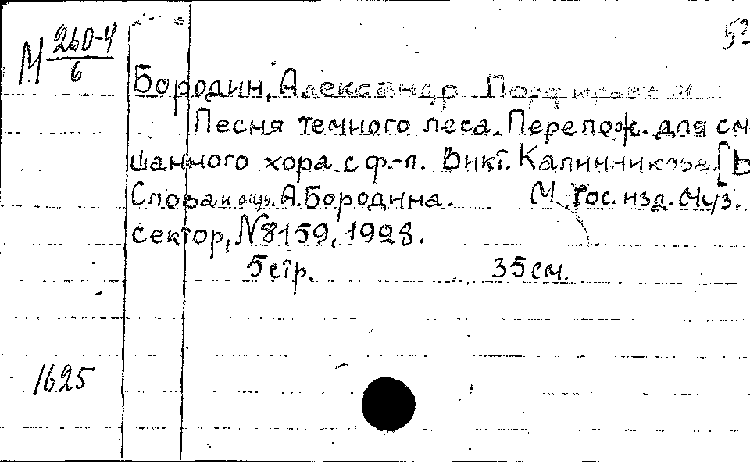 М 260-4
6
Бородин, Александр Порфирьевич
Песня темного леса. Перелож. для см
шанного хора с ф.-п. Викт. Калинникова. [Ь
Слова и муз. А. Бородина. М. Гос. изд. Муз.
сектор, N 8159, 1928.
5 стр. 35 см.
1625